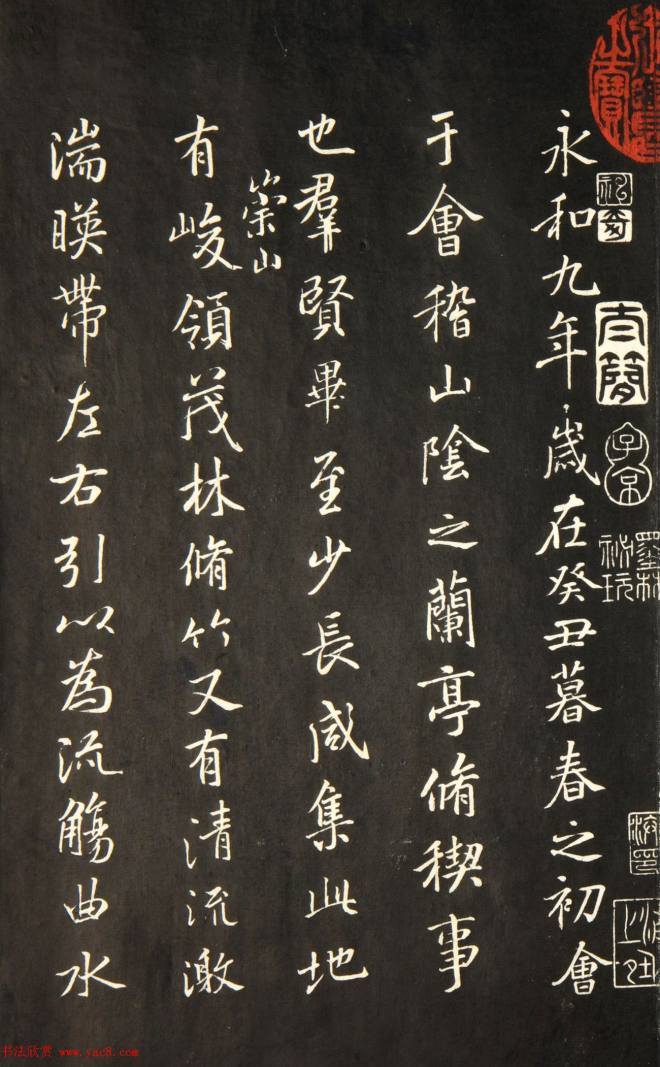 永和九年歲在癸丑暮春之初會
于會稽山陰之蘭亭脩稧事
也羣賢畢至少長咸集此地
有崇山峻領茂林脩竹又有清流激
湍暎帶左右引以為流觴曲水
子京
書法欣赏 www.yac8.com